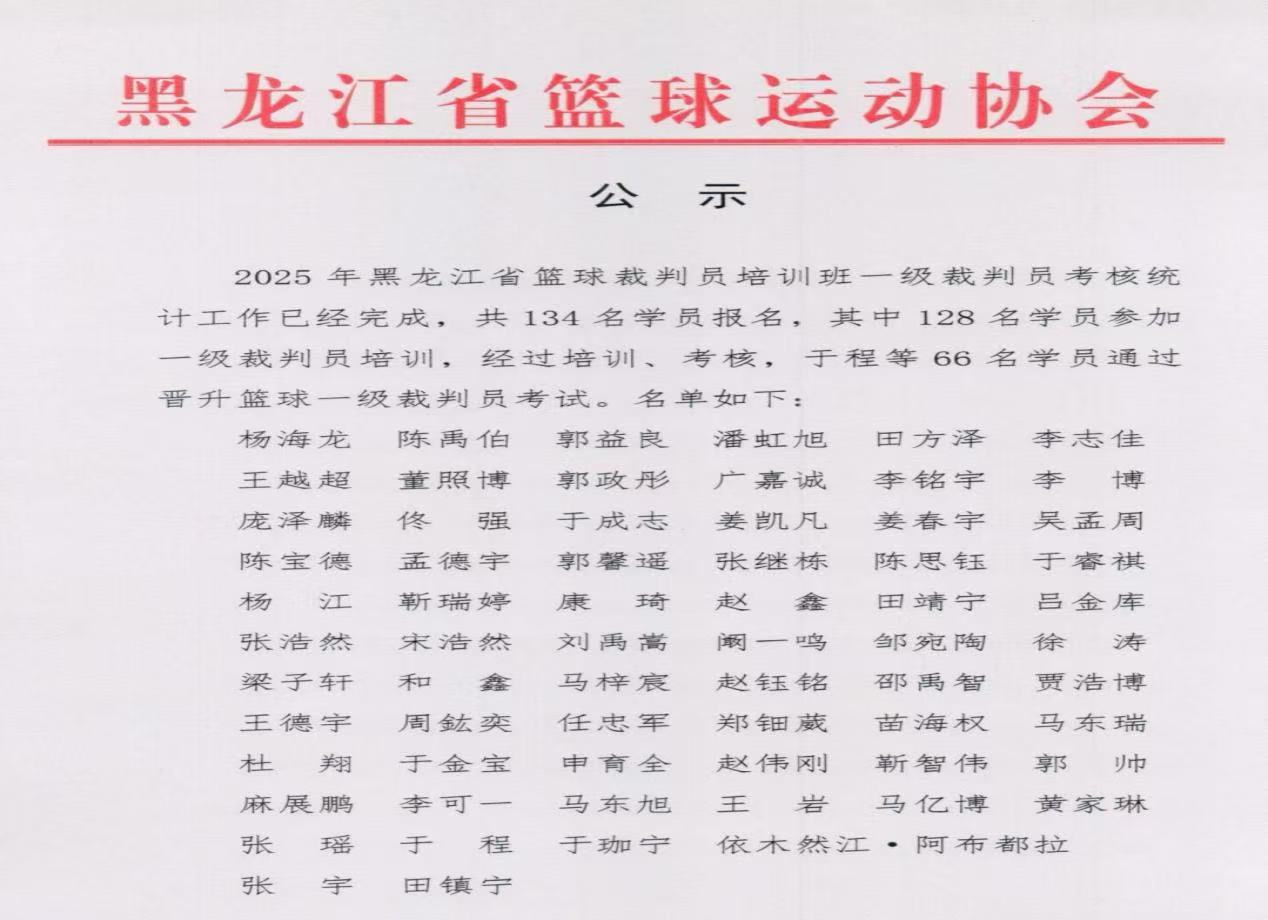 黑龙江省篮球运动协会
公 示
2025 年黑龙江省篮球裁判员培训班一级裁判员考核统
计工作已经完成，共 134 名学员报名，其中 128 名学员参加
一级裁判员培训，经过培训、考核，于程等 66 名学员通过
晋升篮球一级裁判员考试。名单如下：
杨海龙 陈禹伯 郭益良 潘虹旭 田方泽 李志佳
王越超 董照博 郭政彤 广嘉诚 李铭宇 李 博
庞泽麟 佟 强 于成志 姜凯凡 姜春宇 吴孟周
陈宝德 孟德宇 郭馨遥 张继栋 陈思钰 于睿祺
杨 江 靳瑞婷 康 琦 赵 鑫 田靖宁 吕金库
张浩然 宋浩然 刘禹嵩 阚一鸣 邹宛陶 徐 涛
梁子轩 和 鑫 马梓宸 赵钰铭 邵禹智 贾浩博
王德宇 周鈜奕 任忠军 郑钿葳 苗海权 马东瑞
杜 翔 于金宝 申育全 赵伟刚 靳智伟 郭 帅
麻展鹏 李可一 马东旭 王 岩 马亿博 黄家琳
张 瑶 于 程 于珈宁 依木然江·阿布都拉
张 宇 田镇宁